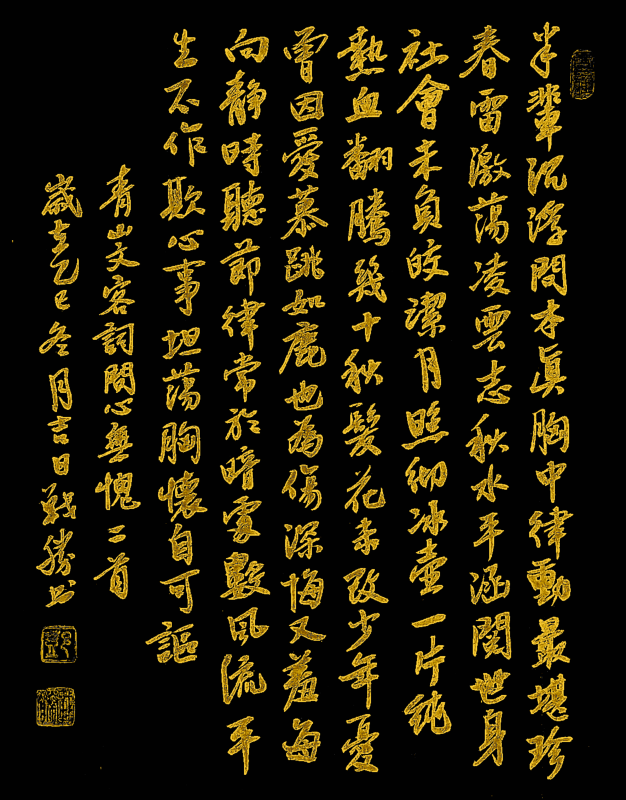 半輩沉浮問本真胸中律動最堪珍
春雷激蕩凌雲志秋水平涵閱世身
社會未負皎潔月照彻冰壶一片純
熱血翻騰幾十秋髮花未改少年憂
曾因愛慕跳如鹿也為傷深悔又羞每
向靜時聽節律常於暗處數風流平
生不作欺心事坦蕩胸懷自可謳
青山文客詞問心無愧二首
歲在乙巳冬月吉日戰勝书